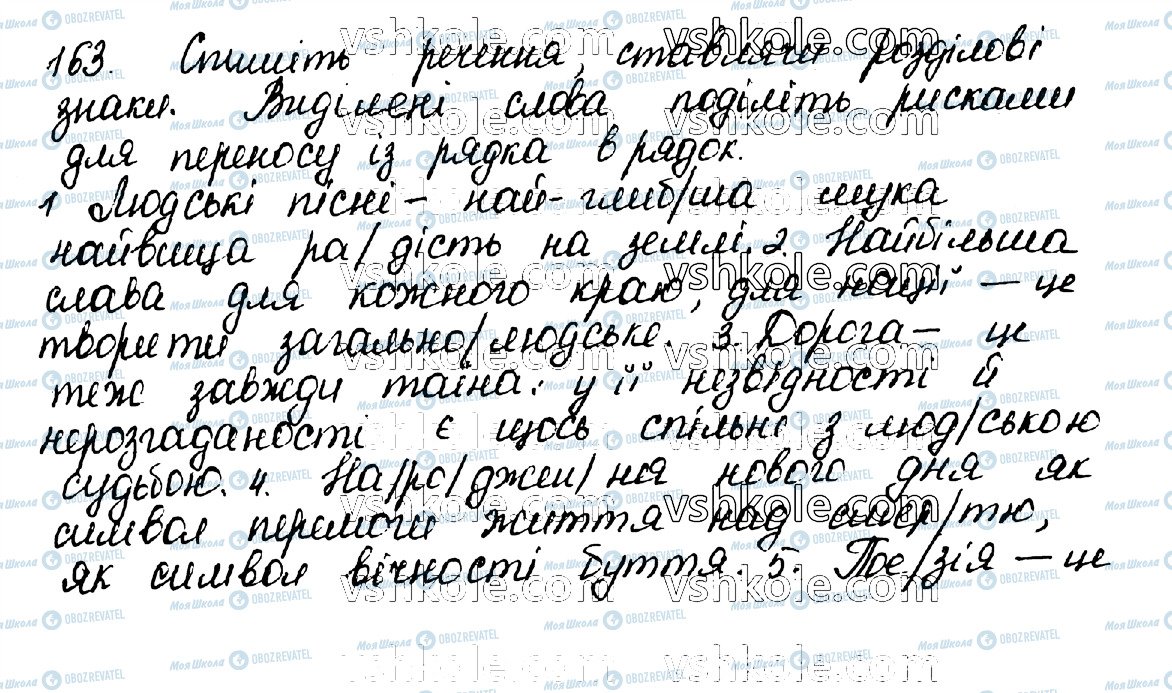 163. Спишіть речення, ставлячи розділові
знаки. Виділені слова поділіть рисками
для переносу із рядка в рядок.
1 Людські пісні – най-глиб/ша мука
найвища ра/дість на землі. 2. Найбільша
слава для кожного краю, для нації – це
творити загально/людське. 3. Дорога – це
теж завжди таїна: у її незвідності й
нерозгаданості є щось спільні з люд/ською
судьбою. 4. На/ро/джен/ня нового дня як
символ перемоги життя над смер/тю,
як символ вічності буття. 5. Пое/зія – це